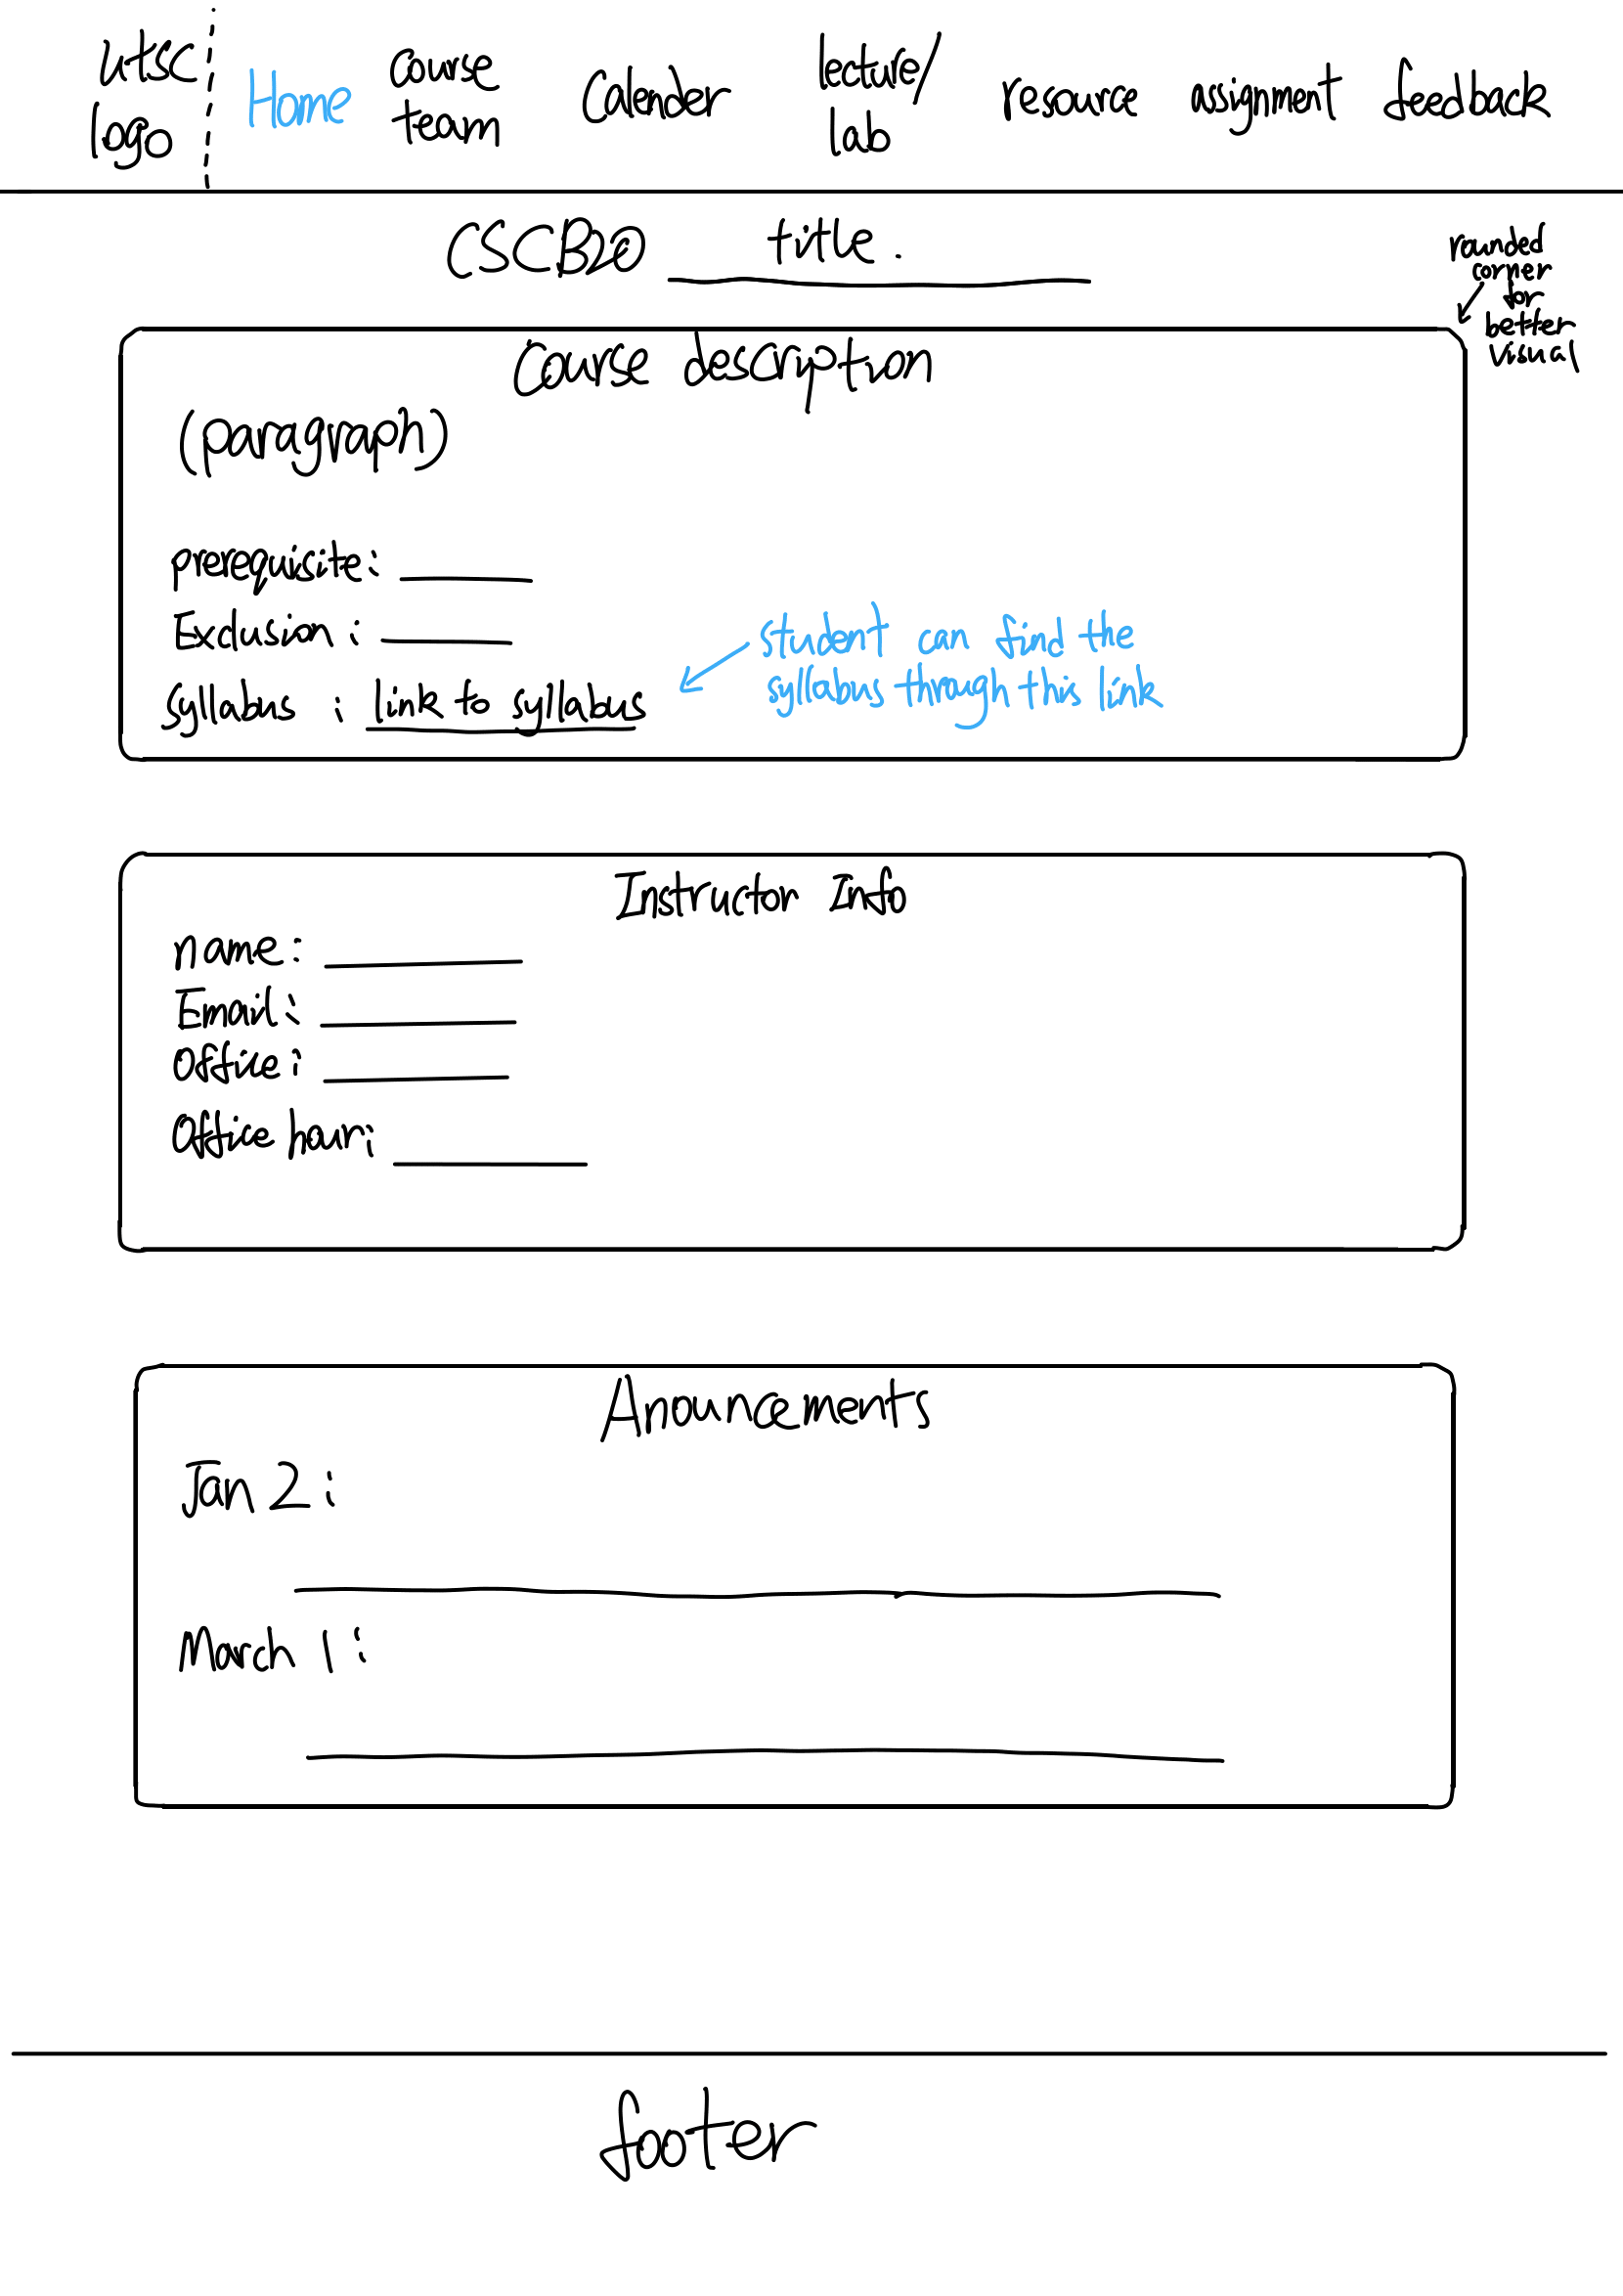 UTSC
logo
Home
course
team
Calender
lecture/
lab
resource
assignment
feedback
CSCB20 title.
rounded
corner
for
better
visual
Course description
(paragraph)
prerequicite:
Exclusion:
student can find the
syllabus through this link
syllabus : link to syllabus
Instructor Info
name:
Email:
Office:
Office hour:
Anouncements
Jan 2:
March 1:
footer